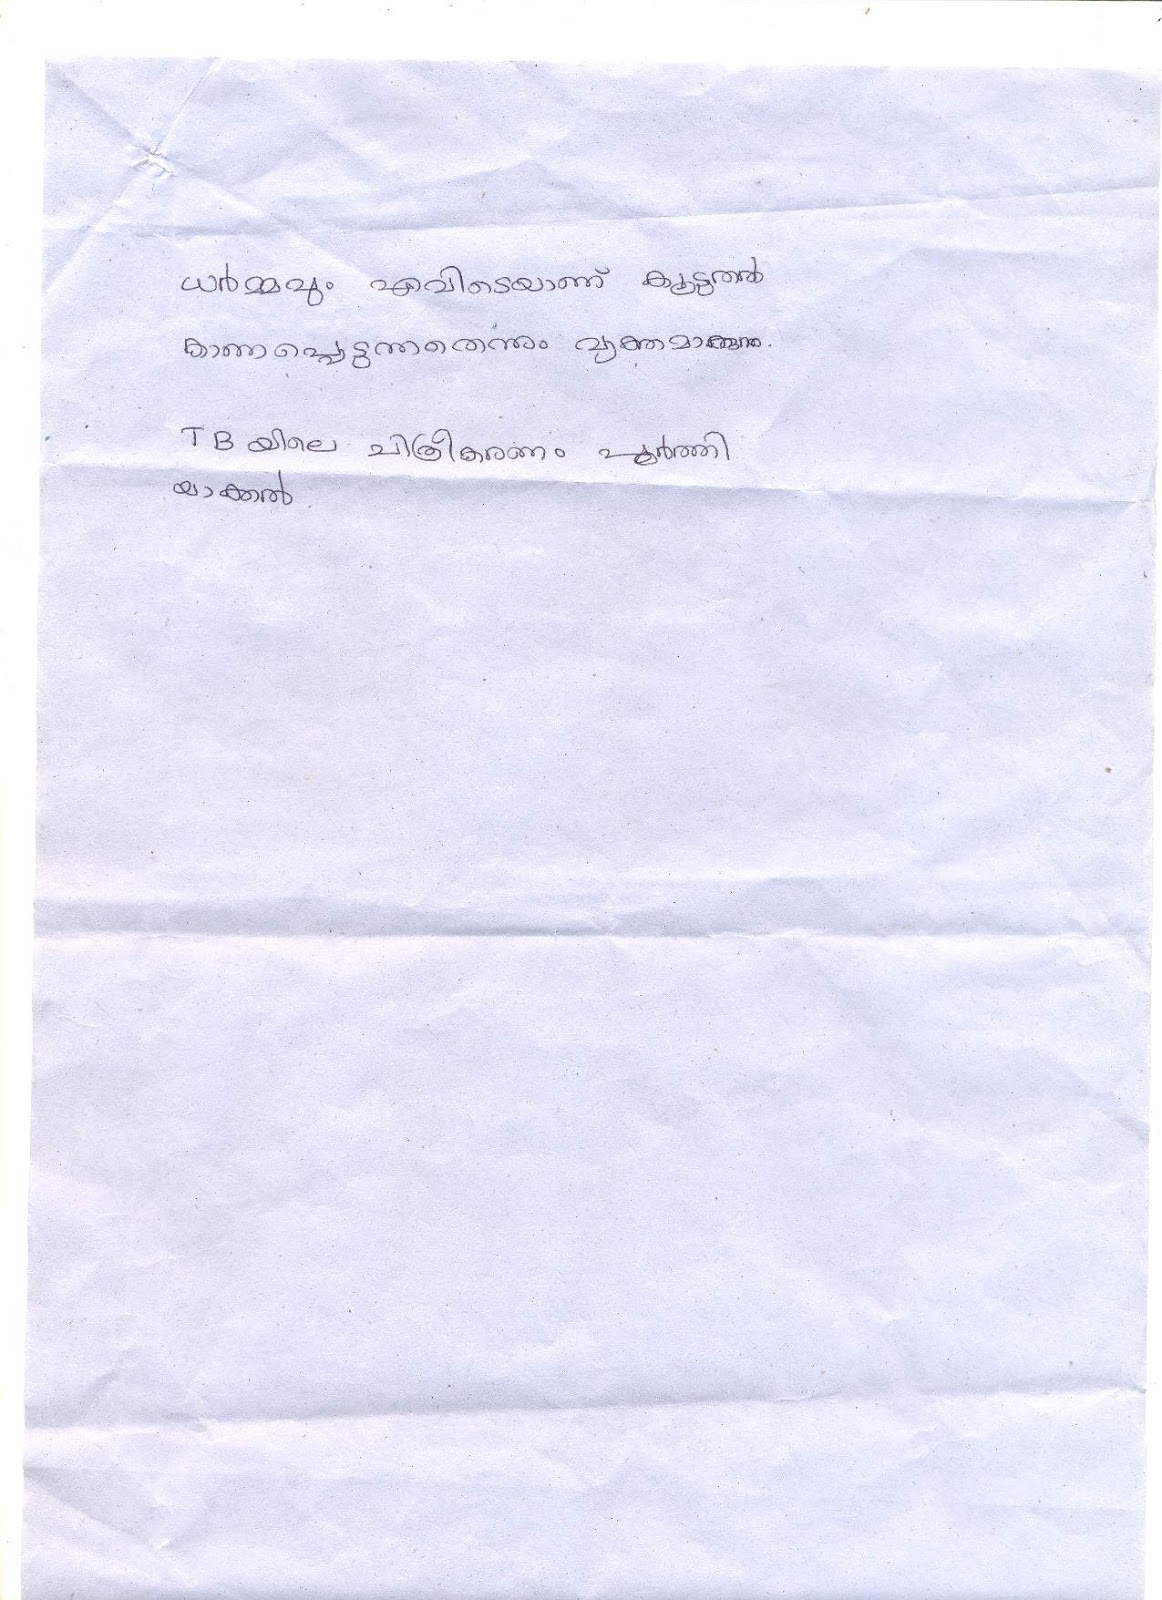 ധർമ്മവും എവിടെയാണ് കൂടുതൽ
കാണപ്പെടുന്നതെന്നും വ്യക്തമാക്കുന്നു.
TB യിലെ ചിത്രീകരണം പൂർത്തി
യാക്കൽ